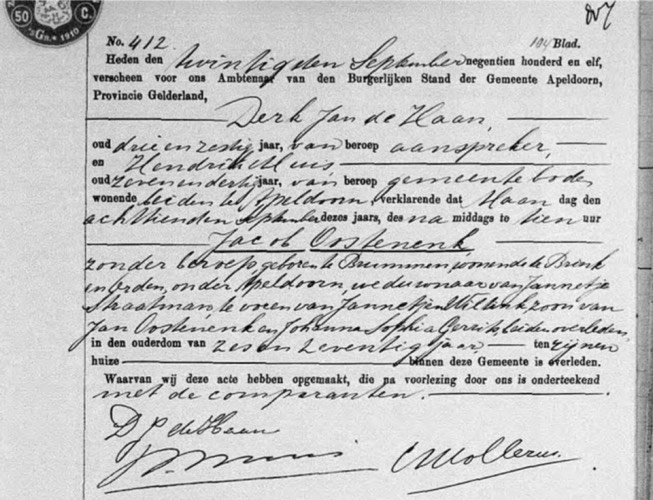 50 C.
'sGra. 1910
No. 412. 104 Blad.
Heden den twintigsten September negentien honderd en elf,
verscheen voor ons Ambtenaar van den Burgerlijken Stand der Gemeente Apeldoorn,
Provincie Gelderland,
Derk Jan de Haan,
oud drie en zestig jaar, van beroep aanspreker,
en Hendrik Muis
oud zeven en dertig jaar, van beroep gemeentebode
wonende beiden te Apeldoorn, verklarende dat Maan dag den
achttienden September dezes jaars, des na middags te tien uur
Jacob Oostenenk
zonder beroep, geboren te Brummen, wonende te Brink
en Orden, onder Apeldoorn, weduwnaar van Jannetje
Straatman, te voren van Jannetjen Wiltink, zoon van
Jan Oostenenk en Johanna Sophia Gerrits, beiden overleden,
in den ouderdom van zes en zeventig jaar, ten zijnen
huize binnen deze Gemeente is overleden.
Waarvan wij deze acte hebben opgemaakt, die na voorlezing door ons is onderteekend
met de comparanten.
D J de Haan
Muis